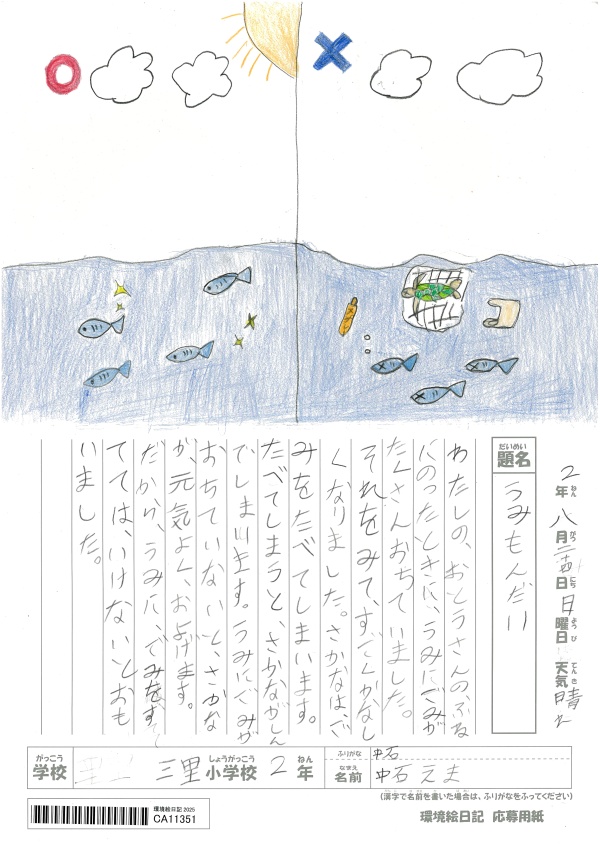 2年八月二十四日日曜日天気晴れ
だいめい
題名 うみもんだい
わたしの、おとうさんのふね
にのったときに、うみにごみが
たくさんおちていました。
それをみて、すごくかなし
くなりました。さかなは、ご
みをたべてしまいます。
たべてしまうと、さかながしん
でしまいます。うみにごみが
おちていないと、さかな
が、元気よく、およげます。
だから、うみに、ごみをす
てては、いけないとおも
いました。
がっこう しょうがっこう ねん
学校 三里小学校 2年
ふりがな 中石
なまえ
名前 中石えま
(漢字で名前を書いた場合は、ふりがなをふってください)
環境絵日記2025
CA11351
環境絵日記 応募用紙